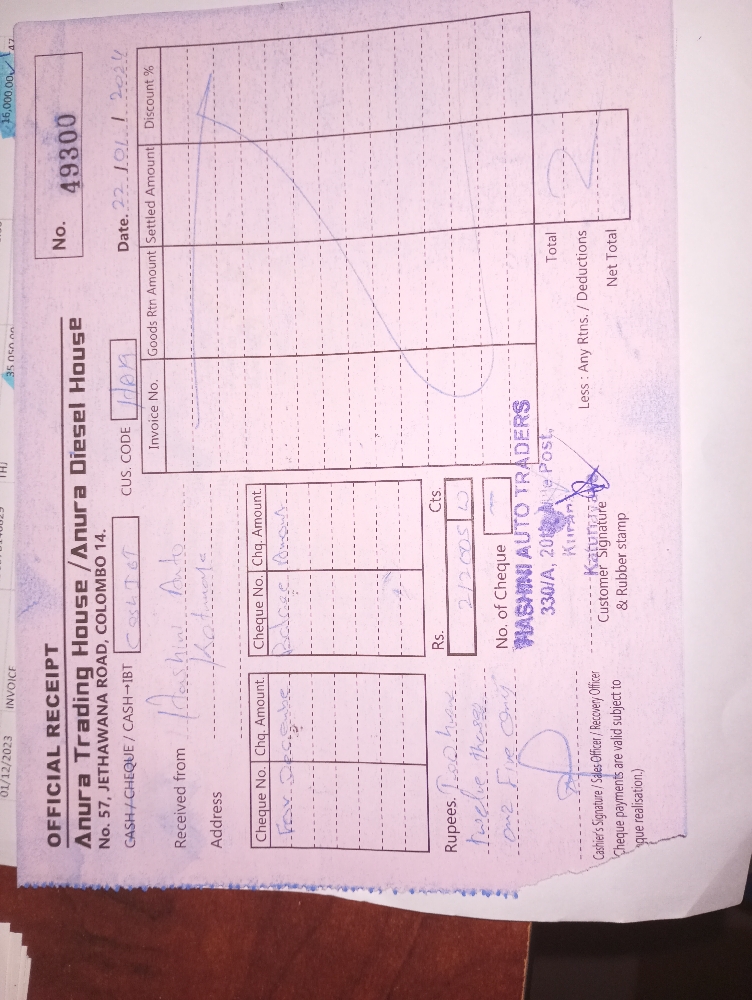 16,000.00
47
35,050.00
THJ
01/12/2023 INVOICE
OFFICIAL RECEIPT
No. 49300
Anura Trading House / Anura Diesel House
No. 57, JETHAWANA ROAD, COLOMBO 14.
CASH / CHEQUE / CASH→IBT
CUS. CODE
Date. 22 / 01 / 2024
Received from Hashini Auto
Address
Invoice No. Goods Rtn Amount Settled Amount Discount %
Cheque No. Chq. Amount. Cheque No. Chq. Amount.
For
Rs. Cts.
Rupees. Two
twelve
one Five only
No. of Cheque
HASHINI AUTO TRADERS
330/A, Post,
Total
Less : Any Rtns. / Deductions
Net Total
Cashier's Signature / Sales Officer / Recovery Officer
Customer Signature
& Rubber stamp
Cheque payments are valid subject to
que realisation.)